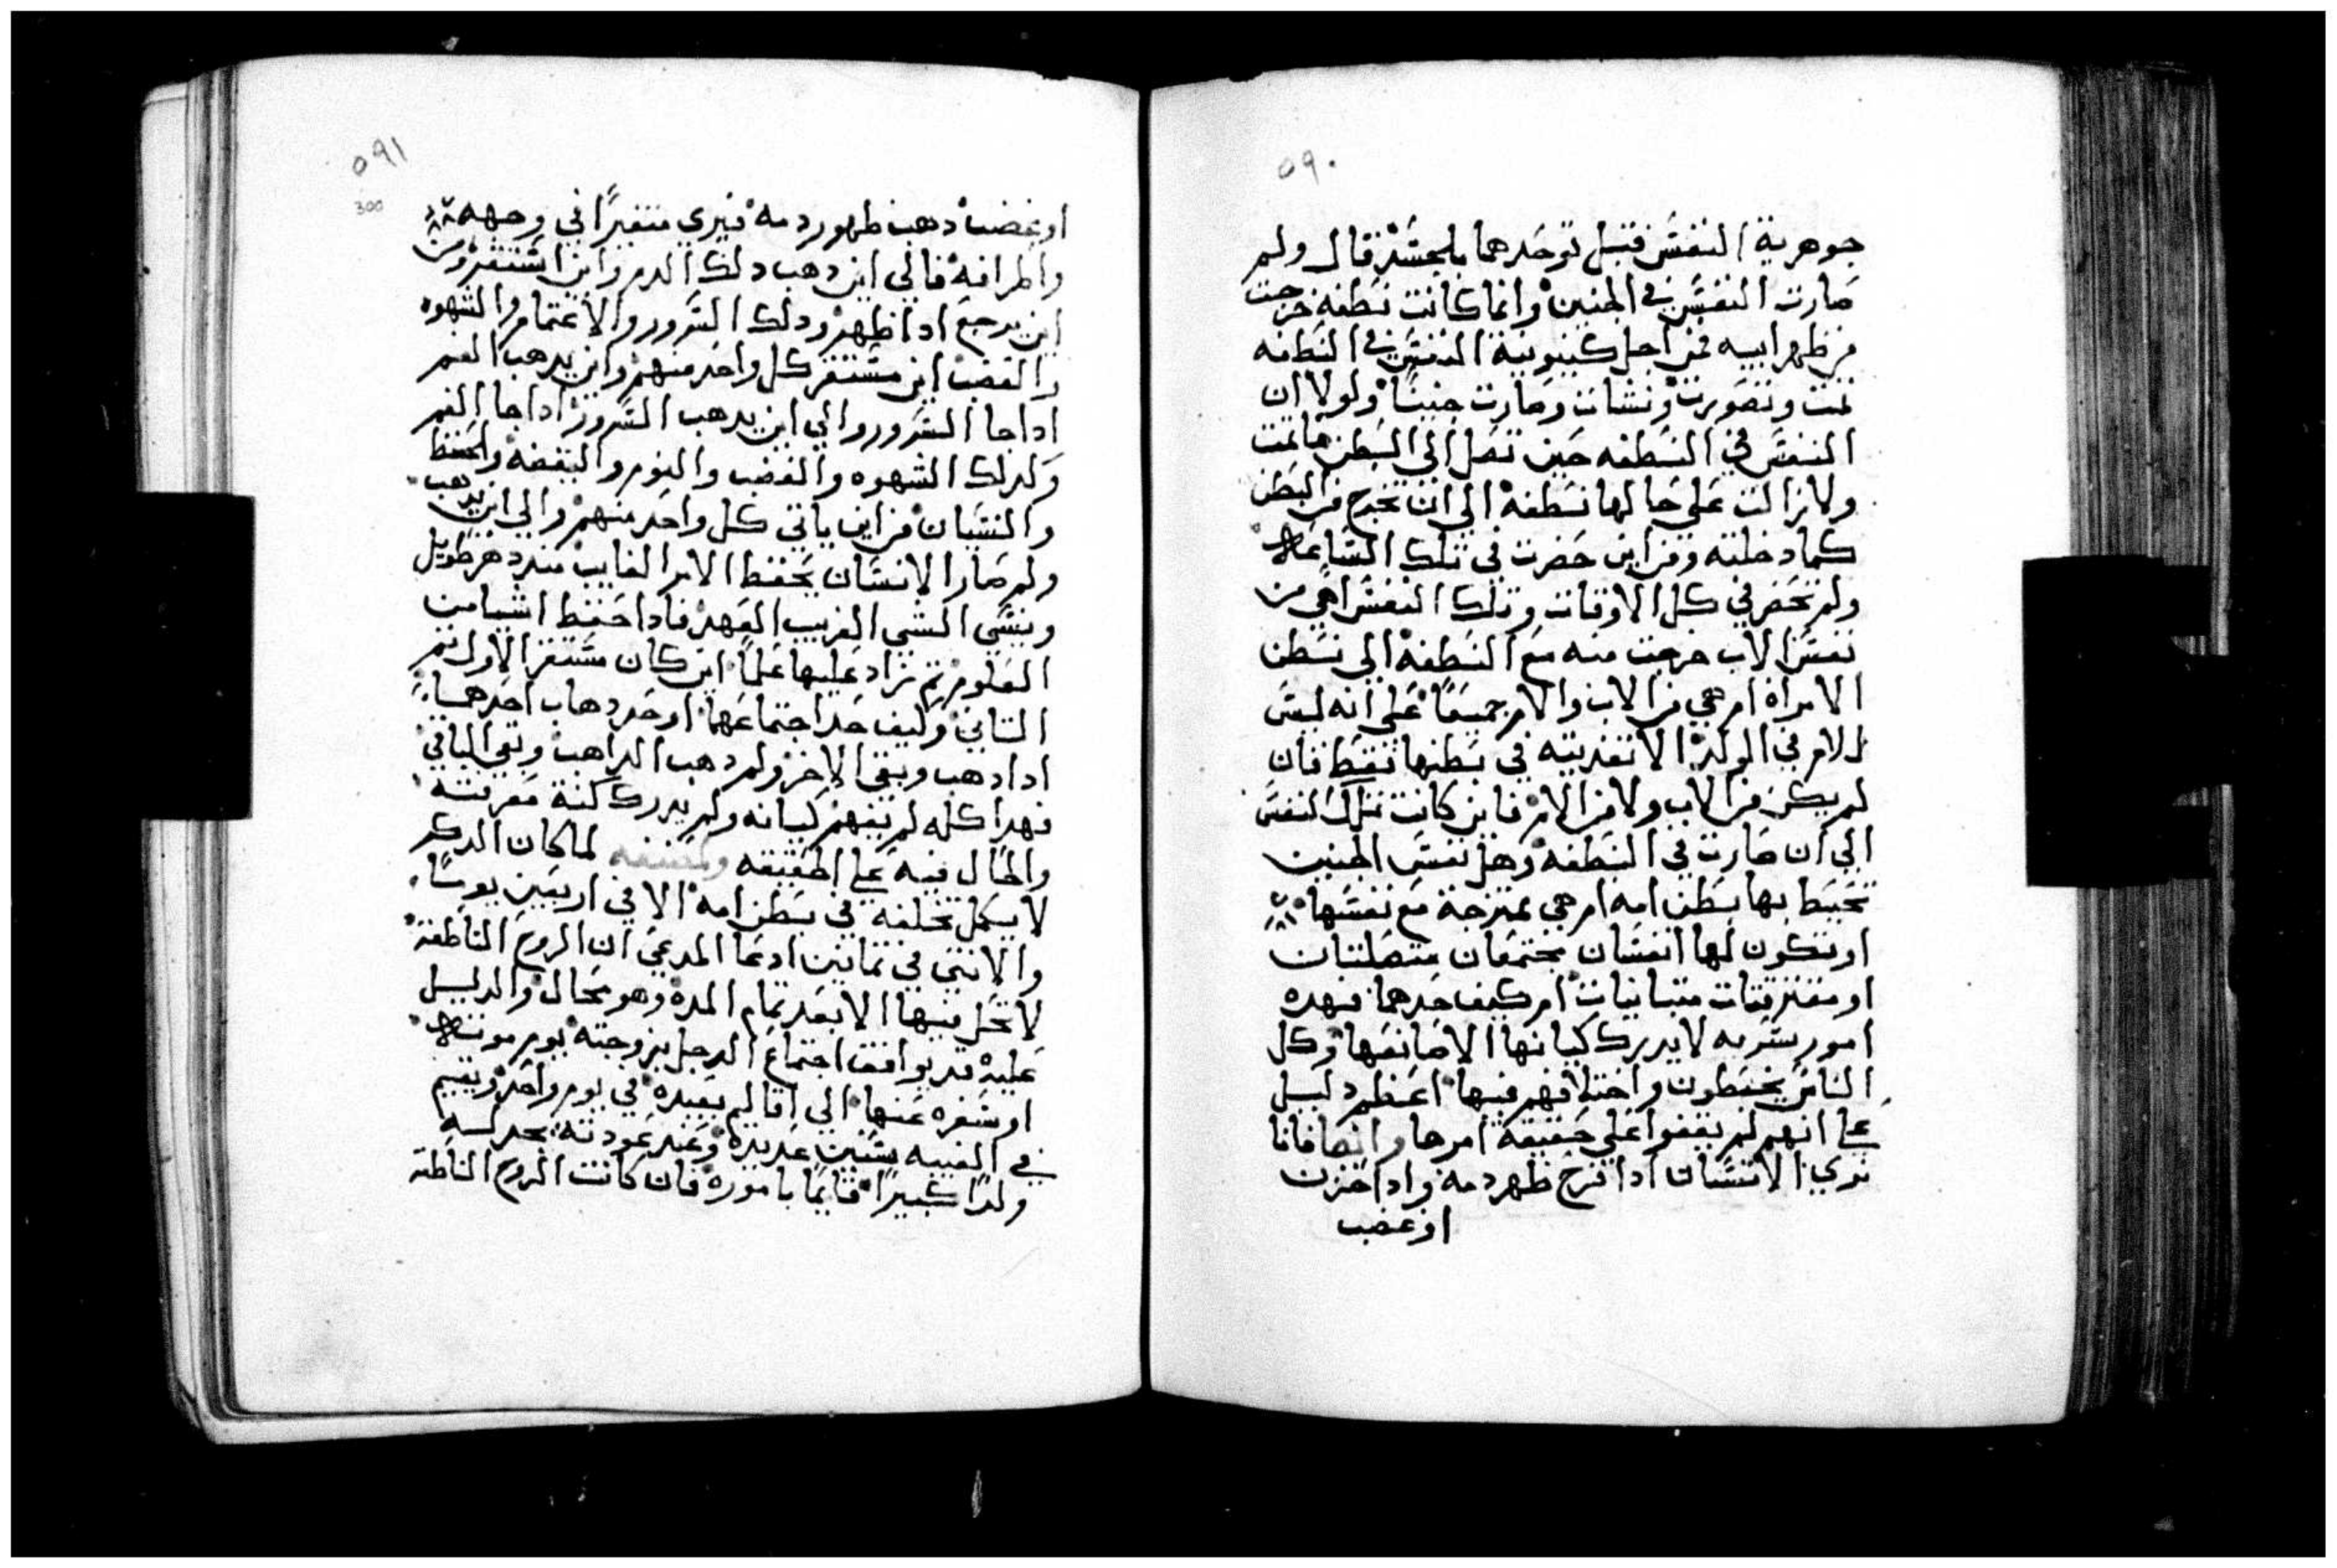 ٥٩٠
جوهرية النفس قبل توحدهما بالجسد قال ولم
صارت النفس في الجنين وانما كانت نطفه خرجت
من ظهر ابيه فمن اجل كينونية النفس في النطفه
تمت وتصورت ونشات وصارت جنينًا ولولا ان
النفس في النطفه حين تصل الي البطن ما تمت
ولا زالت علي حالها نطفة الي ان تخرج من البطن
كما دخلته ومن اين حضرت في تلك الساعة
ولم تحضر في كل الاوقات وتلك النفس اهي من
نفس الاب خرجت منه مع النطفة الي بطن
الامراة ام هي من الاب والام جميعًا علي انه ليس
للام في الولد الا تغديته في بطنها فقط فان
لم يكن من الاب ولا من الام فاين كانت تلك النفس
الي ان صارت في النطفة وهل نفس الجنين
تحيط بها بطن امه ام هي ممتزجة مع نفسها
او تكون لها انفسان مجتمعان متصلتان
او مفترقتات متباينات ام كيف حدهما فهده
امور سريه لا يدرك كيانها الا صانعها وكل
الناس يخبطون واختلافهم فيها اعظم دليل
علي انهم لم يقفوا علي حقيقة امرها وايضا فانا
نري الانسان ادا فرح ظهر دمه وادا حزن
او غضب
٥٩١
300
او غضب دهب ظهور دمه فيري متغيرًا في وجهه
والمرافه فالي اين دهب دلك الدم واين استقر ومن
اين يرجع ادا ظهر ودلك السرور والاغتمام والشهوه
والغضب اين مستقر كل واحد منهم واين يدهب الغم
ادا جا السرور والي اين يدهب السرور ادا جا الغم
وكدلك الشهوه والغضب والنوم والبغضه والحفظ
والنسيان من اين ياتي كل واحد منهم والي اين يدهب
ولم صار الانسان يحفظ الامر الغايب مند دهر طويل
وينسي الشي القريب العهد فادا حفظ اشيا من
العلوم ثم تزاد عليها علمًا اين كان مستقر الاول ثم
الثاني وكيف حد اجتماعهما او حد دهاب احدهما
ادا دهب وبقي الاخر ولم دهب الداهب وبقي الباقي
فهدا كله لم يفهم كيانه ولم يدرك كنة معرفته
والحال فيه علي الحقيقه لما كان الدكر
لا يكمل تخلقه في بطن امه الا في اربعين يومًا
والانثي في تمانين ادعا المدعي ان الروح الناطقة
لا تحل فيها الا بعد تمام المدة وهو محال والدليل
عليه قد يوافق اجتماع الرجل بزوجته يوم موته
او سفره عنها الي اقاليم بعيده في يوم واحد ويقيم
في الغيبه سنين عديدة وعند عودته يجد له
ولدًا كبيرًا قايمًا باموره فان كانت الروح الناطقة